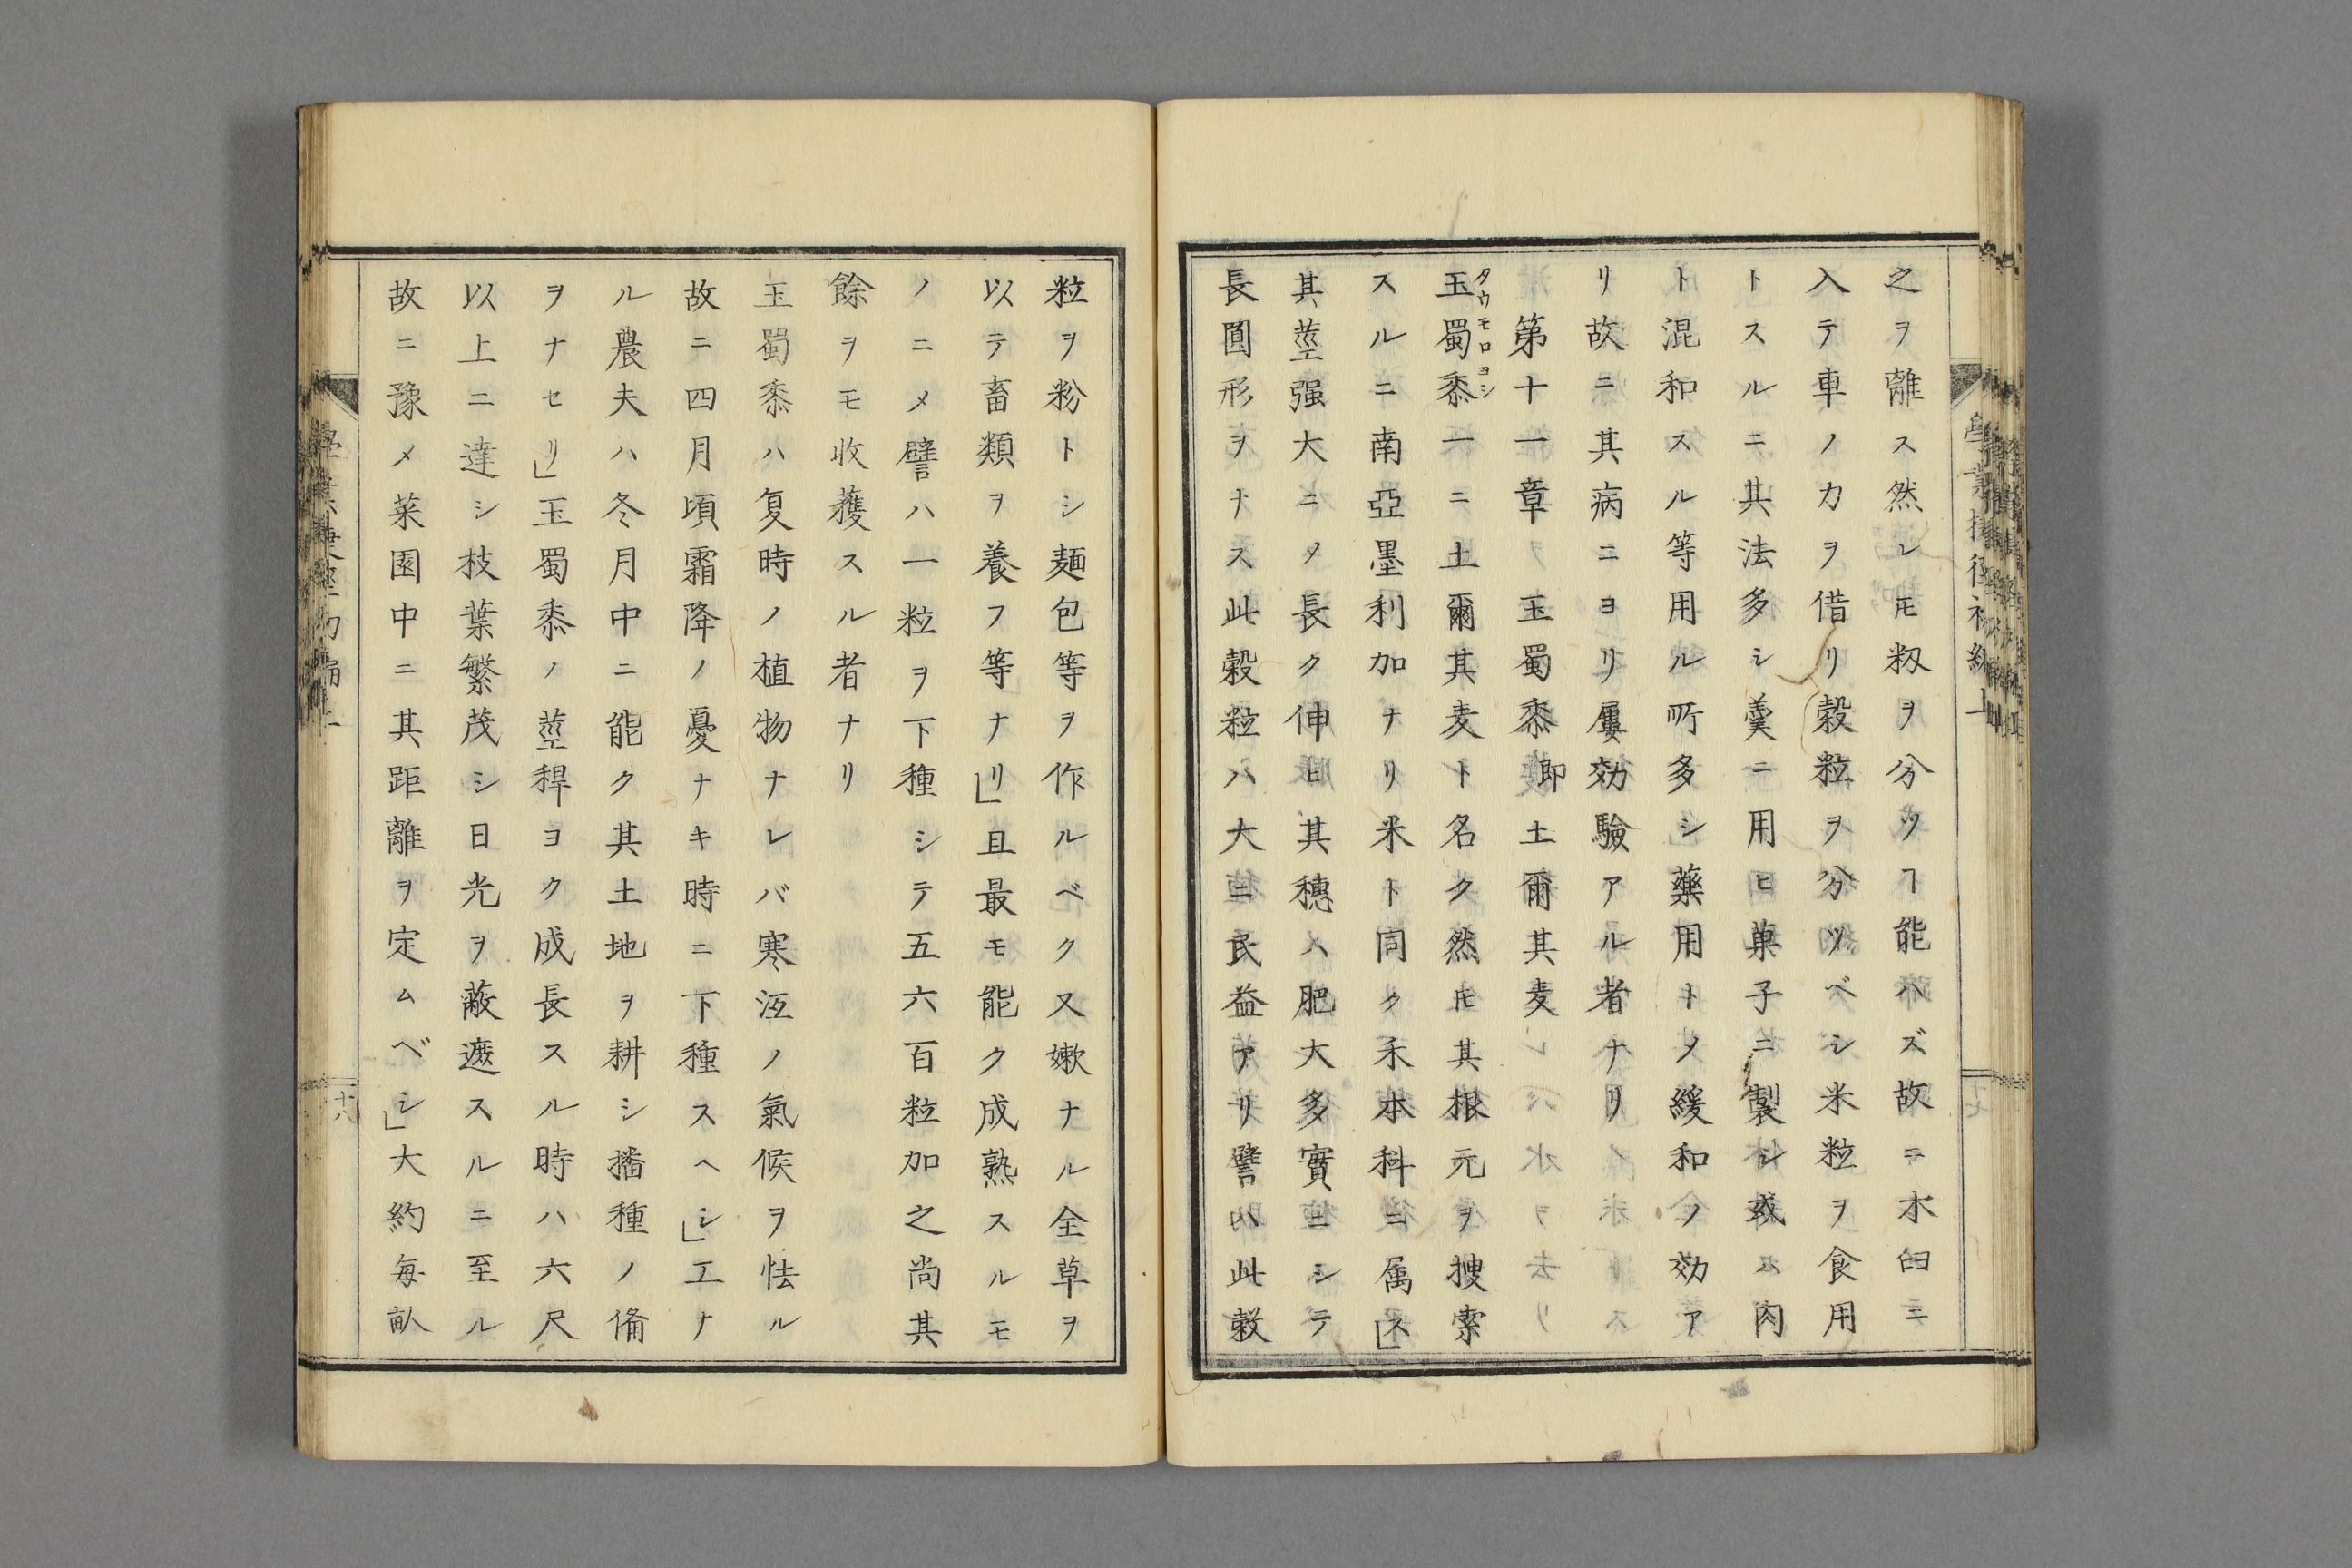 之ヲ離ス然レ𪜈籾ヲ分ツヿ能ハズ故ニ木臼ニ
入テ車ノカヲ借リ穀粒ヲ分ツベシ米粒ヲ食用
トスルニ其法多シ羹ニ用ヒ菓子ニ製シ或ハ肉
ト混和スル等用ル所多シ藥用トメ緩和ノ効ア
リ故ニ其病ニヨリ屢効驗アル者ナリ
第十一章 玉蜀黍 即土爾其麦
玉蜀黍一ニ土爾其麦ト名ク然𪜈其根元ヲ搜索
タウモロコシ
スルニ南亞墨利加ナリ米ト同ク禾本科ニ属ス」
其莖强大ニメ長ク伸ヒ其穗ハ肥大多實ニシテ
長圓形ヲナス此穀粒ハ大ニ民益アリ譬ハ此穀
粒ヲ粉トシ麺包等ヲ作ルベク又嫰ナル全草ヲ
以テ畜類ヲ養フ等ナリ」且最モ能ク成熟スルモ
ノニメ譬ハ一粒ヲ下種シテ五六百粒加之尚其
餘ヲモ收蕵スル者ナリ
玉蜀黍ハ夏時ノ植物ナレバ寒沍ノ氣候ヲ怯ル
故ニ四月頃霜降ノ憂ナキ時ニ下種スヘシ」工ナ
ル農夫ハ冬月中ニ能ク其土地ヲ耕シ播種ノ備
ヲナセリ」玉蜀黍ノ莖稈ヨク成長スル時ハ六尺
以上ニ達シ枝葉繁茂シ日光ヲ蔽遮スルニ至ル
故ニ豫メ菜園中ニ其距離ヲ定ムベシ」大約毎畝
十八